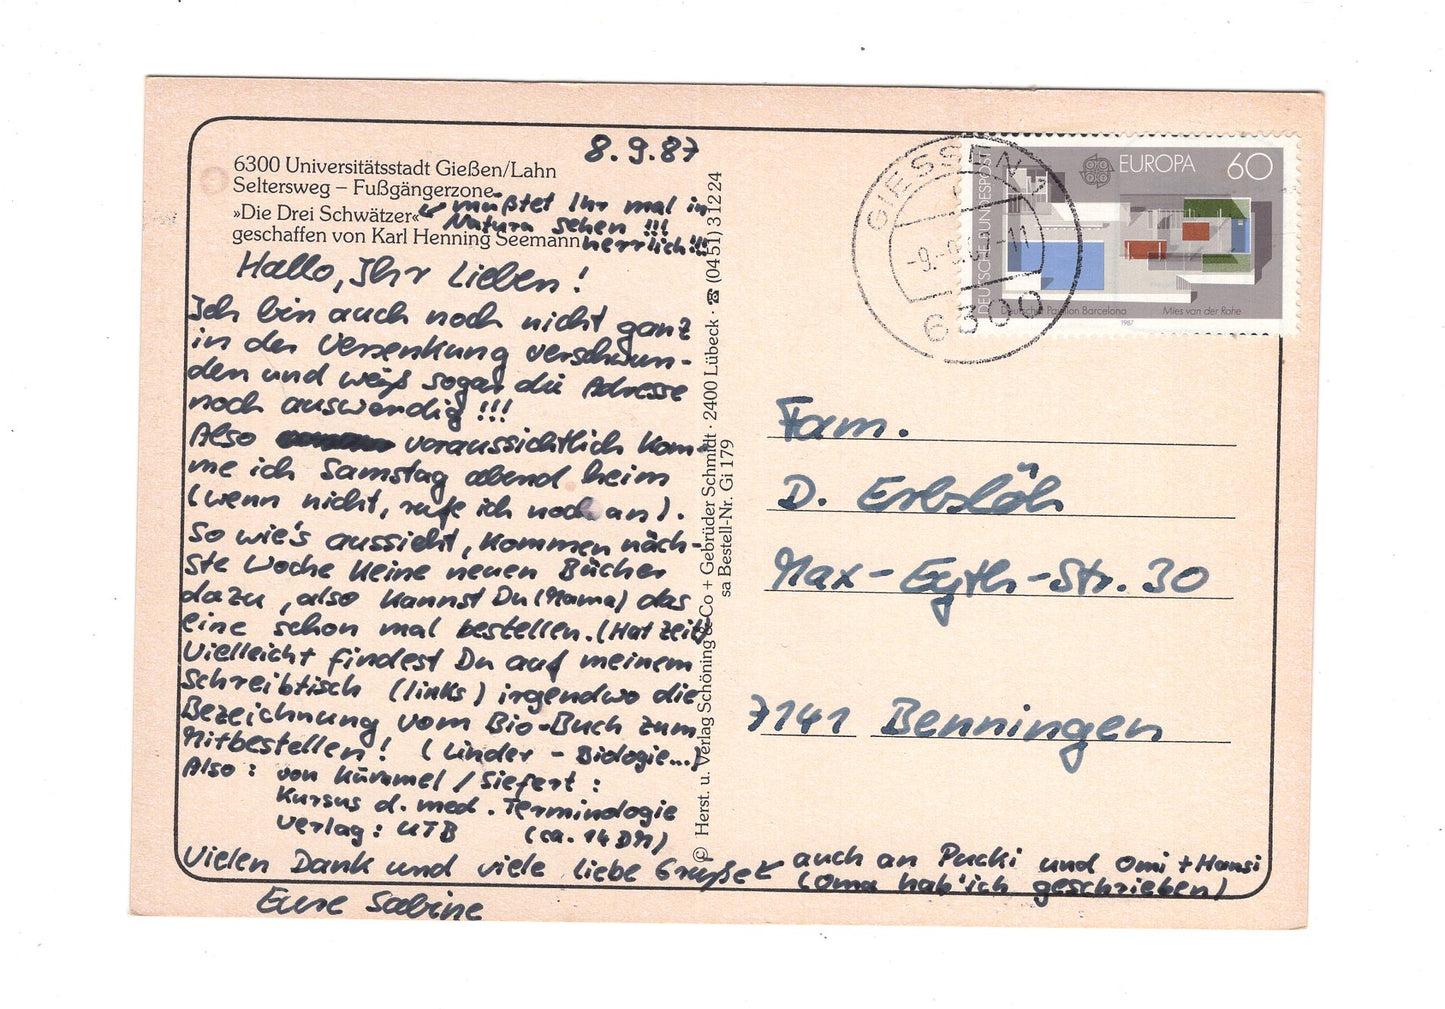 8.9.87
6300 Universitätsstadt Gießen/Lahn
Seltersweg – Fußgängerzone
»Die Drei Schwätzer«
geschaffen von Karl Henning Seemann
müßtet Ihr mal in
Natura sehen !!!
herrlich!!!
Hallo, Ihr Lieben!
Ich bin auch noch nicht ganz
in der Versenkung verschwun-
den und weiß sogar die Adresse
noch auswendig!!!
Also voraussichtlich kom-
me ich Samstag abend heim
(wenn nicht, rufe ich noch an).
So wie's aussieht, kommen näch-
ste Woche keine neuen Bücher
dazu, also kannst Du (Mama) das
eine schon mal bestellen. (Hat Zeit)
Vielleicht findest Du auf meinem
Schreibtisch (links) irgendwo die
Bezeichnung vom Bio-Buch zum
Mitbestellen! (Linder – Biologie...)
Also: von Kümmel / Siefert:
Kursus d. med. Terminologie
Verlag: UTB (ca. 14 DM)
Vielen Dank und viele liebe Grüße
auch an Pucki und Omi + Hansi
(Oma hab' ich geschrieben)
Eure Sabine
© Herst. u. Verlag Schöning & Co + Gebrüder Schmidt · 2400 Lübeck · ☎ (0451) 3 12 24
sa Bestell-Nr. Gi 179
GIESSEN 1
-9.-9.87-11
6300
DEUTSCHE BUNDESPOST
EUROPA 60
Deutscher Pavillon Barcelona
Mies van der Rohe
1987
Fam.
D. Erbslöh
Max-Eyth-Str. 30
7141 Benningen